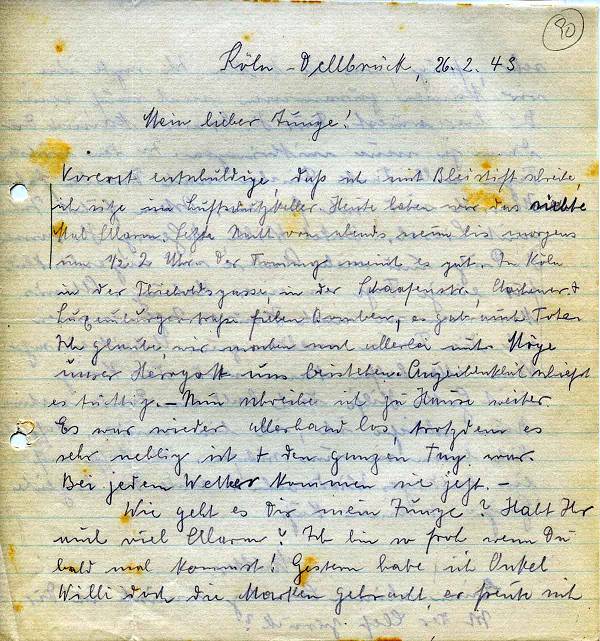 90
Köln-Dellbrück, 26.2.43
Mein lieber Junge!
Vorerst entschuldige, daß ich mit Bleistift schreibe,
ich sitze im Luftschutzkeller. Heute haben wir das
Mal Alarm. Letzte Nacht von abends neun bis morgens
um 1/2 2 Uhr. Der Tommy meint es gut. In Köln
in der Thieboldsgasse, in der Schaafenstr., Aachener- &
Luxemburgerstraße fielen Bomben, es gab auch Tote.
Ich glaube, wir machen noch allerlei mit. Möge
unser Herrgott uns beistehen. Augenblicklich schießt
es tüchtig. – Nun schreibe ich zu Hause weiter.
Es war wieder allerhand los, trotzdem es
sehr neblig ist & den ganzen Tag war.
Bei jedem Wetter kommen sie jetzt. –
Wie geht es Dir mein Junge? Habt Ihr
auch viel Alarm? Ich bin so froh wenn Du
bald mal kommst! Gestern habe ich Onkel
Willi doch die Marken gebracht, er freute sich